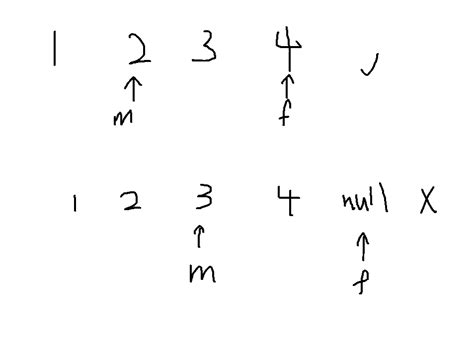 1 2 3 4 ✓
m f
1 2 3 4 null X
m f